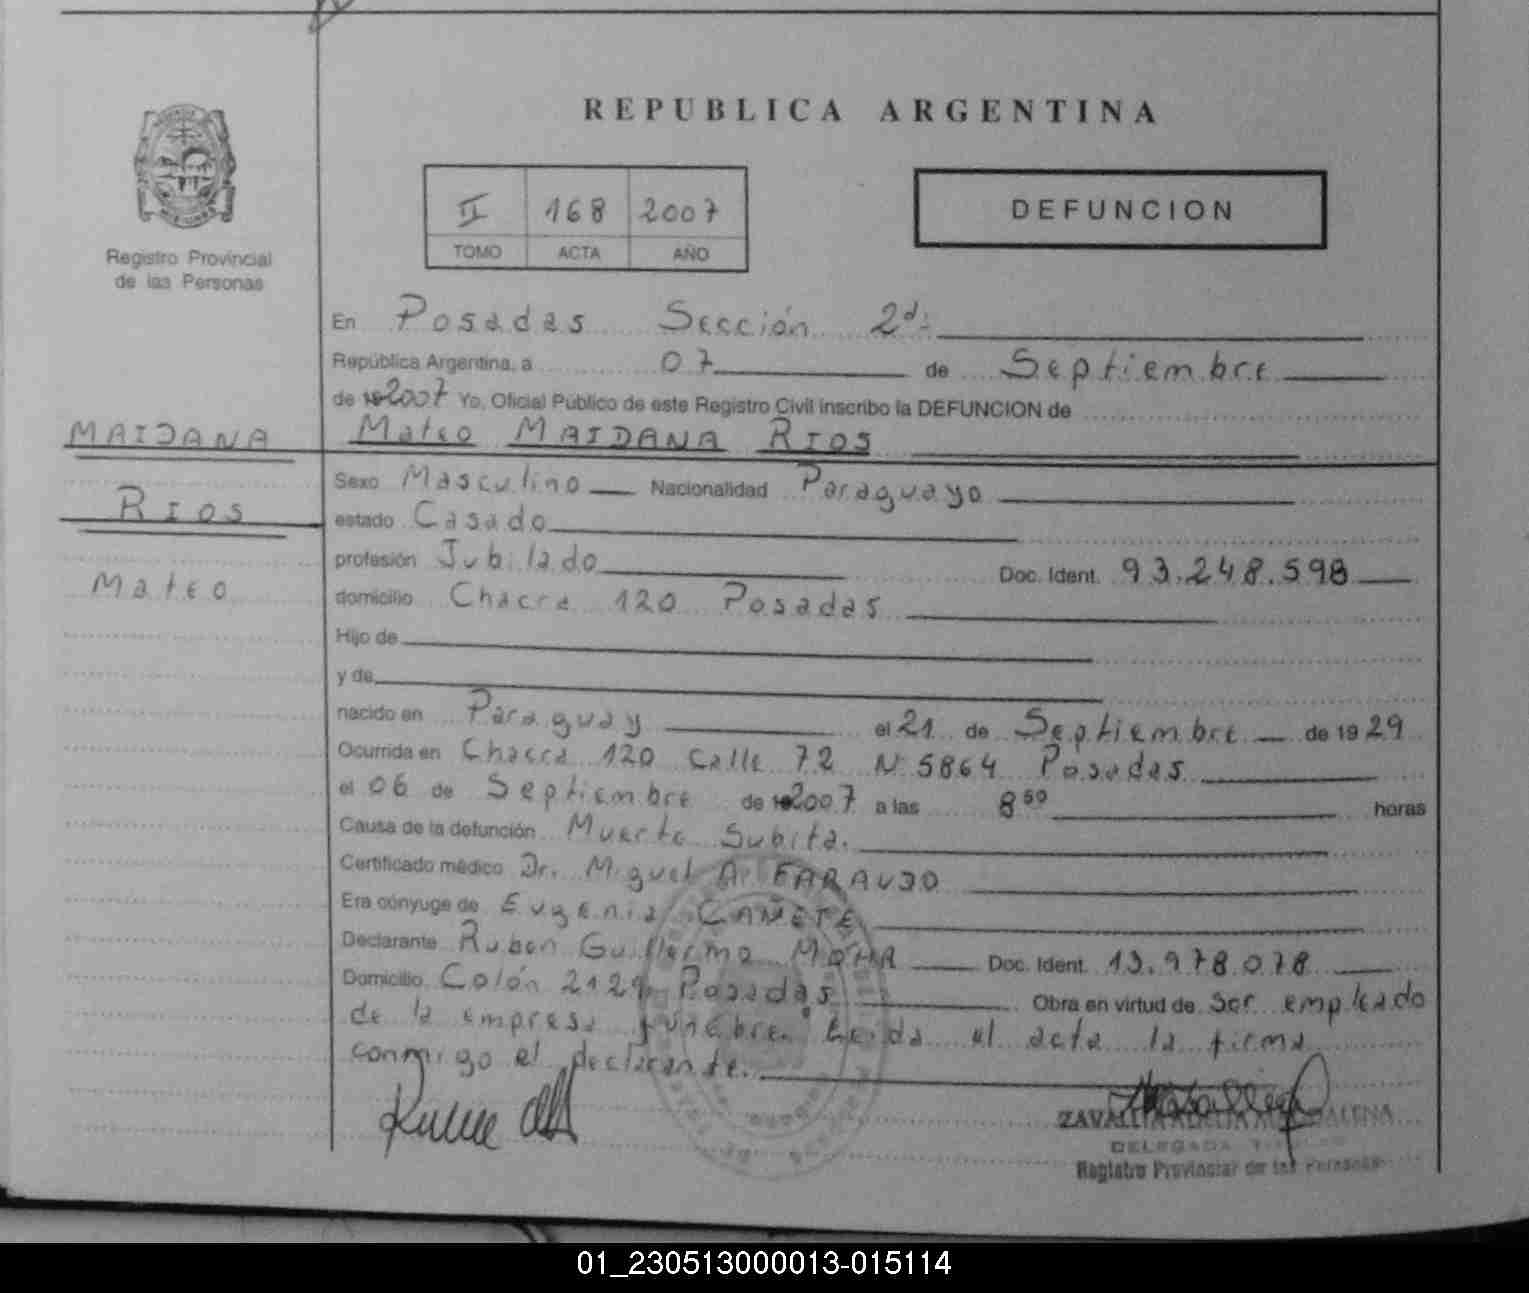 REPUBLICA ARGENTINA
II 168 2007
TOMO ACTA AÑO
DEFUNCION
Registro Provincial
de las Personas
MAIDANA
RIOS
Mateo
En Posadas Sección 2da
República Argentina, a 07 de Septiembre
de 19 2007 Yo, Oficial Público de este Registro Civil inscribo la DEFUNCION de
Mateo MAIDANA RIOS
Sexo Masculino Nacionalidad Paraguayo
estado Casado
profesión Jubilado Doc. Ident. 93.248.598
domicilio Chacra 120 Posadas
Hijo de
y de
nacido en Paraguay el 21 de Septiembre de 1929
Ocurrida en Chacra 120 Calle 72 N 5864 Posadas
el 06 de Septiembre de 19 2007 a las 8 50 horas
Causa de la defunción Muerte Subita.
Certificado médico Dr. Miguel A. FARAUJO
Era cónyuge de Eugenia CAÑETE
Declarante Ruben Guillermo MOHR Doc. Ident. 13.978.078
Domicilio Colón 2129 Posadas Obra en virtud de Ser empleado
de la empresa funebre. Leida el acta la firma
conmigo el declarante.
DELEGADA
Registro Provincial de las Personas
01_230513000013-015114